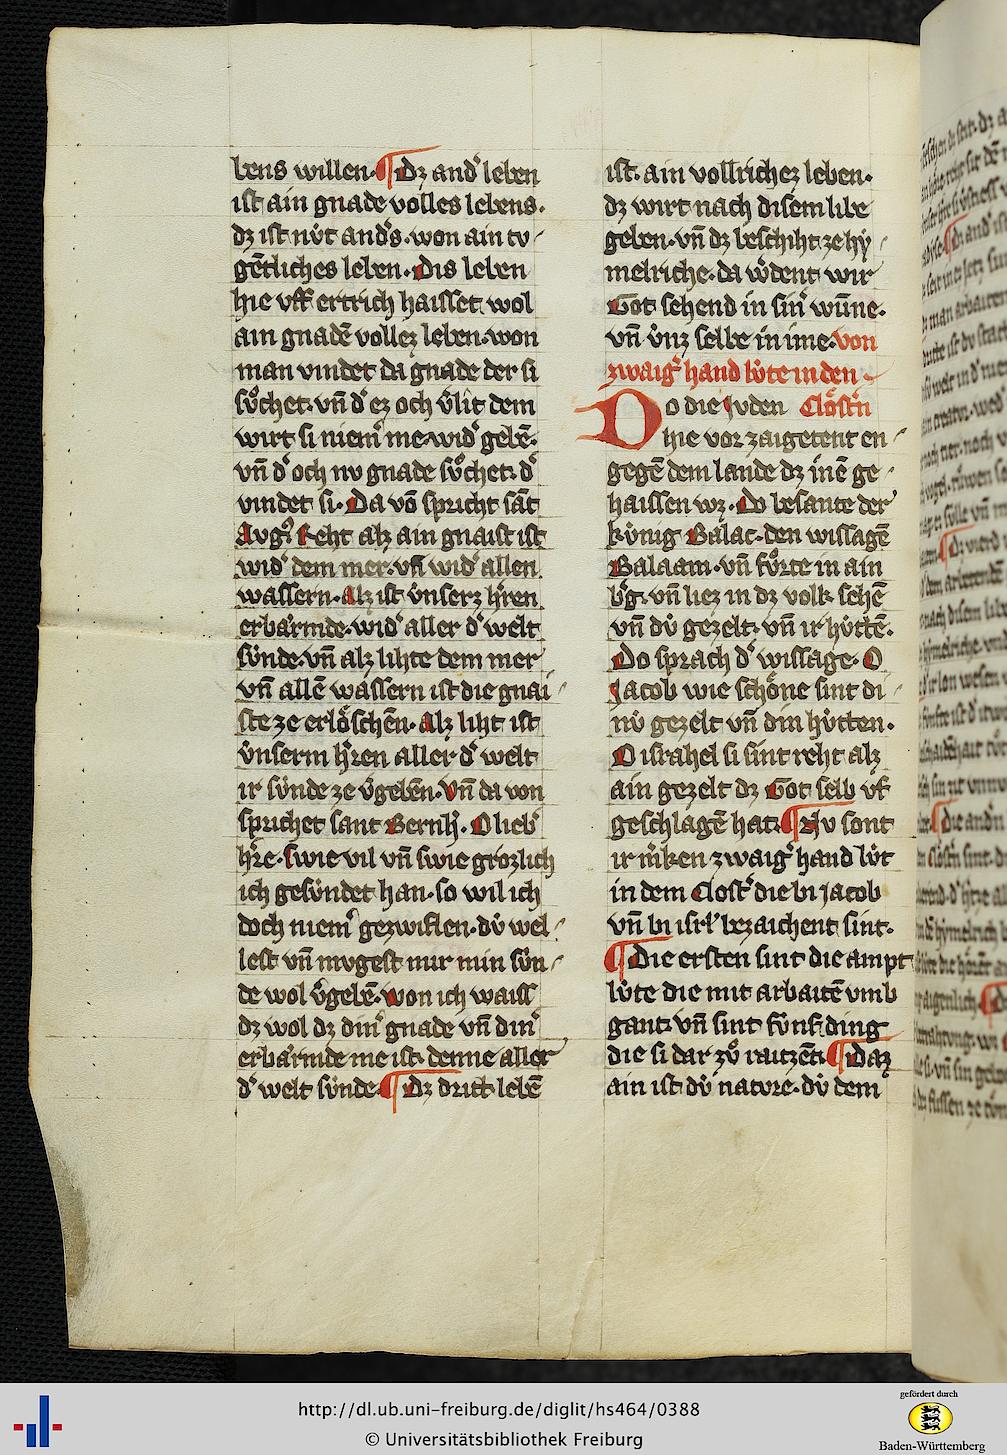 bens willen. ¶ Dz and͛ leben
ist ain gnade volles lebens.
dz ist nv̍t and͛s. won ain tv
gētliches leben. Dis leben
hie vff ertrich haisset wol
ain gnadē vollez leben. won
man vindet da gnade der si
sůchet. vn̄ d͛ ez och v͛lit dem
wirt si niem͛ me wid͛ gebē.
vn̄ d͛ och nv gnade sůchet. d͛
vindet si. Da vō spricht sāt
Avgꝰ. Reht alz ain gnaist ist
wid͛ dem mer. vn̄ wid͛ allen
wassern. Alz ist v̍nserz h͛ren
erbårmde. wid͛ aller d͛ welt
sv̍nde. vn̄ alz lihte dem mer
vn̄ allē wassern ist die gnai
ste ze erlo̍schēn. Alz liht ist
v̍nserm h͛ren aller d͛ welt
ir sv̍nde ze v͛gebēn. Vn̄ da von
sprichet sant Bernh͛. O lieb͛
h͛re. swie vil vn̄ swie grozlich
ich gesv̍ndet han. so wil ich
doch niem͛ gezwiflen. dv̍ wel
lest vn̄ mvgest mir min sv̍n
de wol v͛gebē. won ich waiss
dz wol dz din͛ gnade vn̄ din͛
erbårmde me ist. denne aller
d͛ welt sv̍nde. ¶ Dz dritt lebē
ist. ain vollrichez leben.
dz wirt nach disem libe
geben. vn̄ dz beschiht ze hẏ
melriche. da w͛dent wir
Got sehend in sin͛ wūne.
vn̄ v̍nz selbe in ime. von
zwaig͛ hand lv̍te in den
Do die Jvden Clo̍st͛n
hie vor zaigetent en
gegē dem lande dz inē ge
haissen wz. Do besante der
kv̍nig Balac. den wissagē
Balaam. vn̄ fůrte in ain
b͛g. vn̄ liez in dz volk sehē
vn̄ dv̍ gezelt. vn̄ ir hv̍ttē.
Do sprach d͛ wissage. O
Jacob wie scho̍ne sint di
nv̍ gezelt vn̄ din hv̍tten.
O israhel si sint reht alz
ain gezelt dz Got selb vf
geschlagē hat. ¶ Nv sont
ir m͛ken zwaig͛ hand lv̍t
in dem Clost͛ die bi Jacob
vn̄ bi isrl̓ bezaichent sint.
¶ Die ersten sint die ampt
lv̍te die mit arbaitē vmb
gant. vn̄ sint fv̍nf ding
die si dar zů raitzent. ¶ Daz
ain ist dv̍ natvre. dv̍ dem
http://dl.ub.uni-freiburg.de/diglit/hs464/0388
© Universitätsbibliothek Freiburg
gefördert durch
Baden-Württemberg